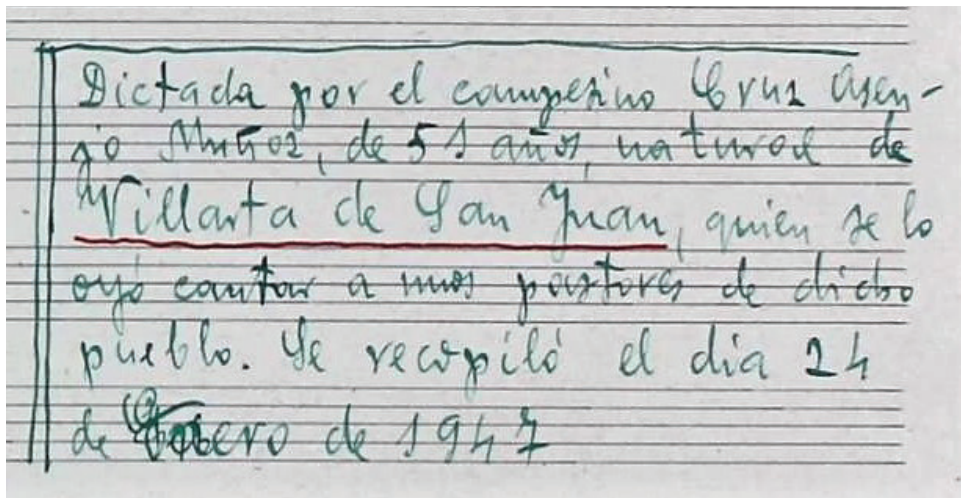 Dictada por el campesino Cruz Asen-
jo Muñoz, de 51 años, natural de
Villarta de San Juan, quien se lo
oyó cantar a unos pastores de dicho
pueblo. Se recopiló el dia 24
de Enero de 1947